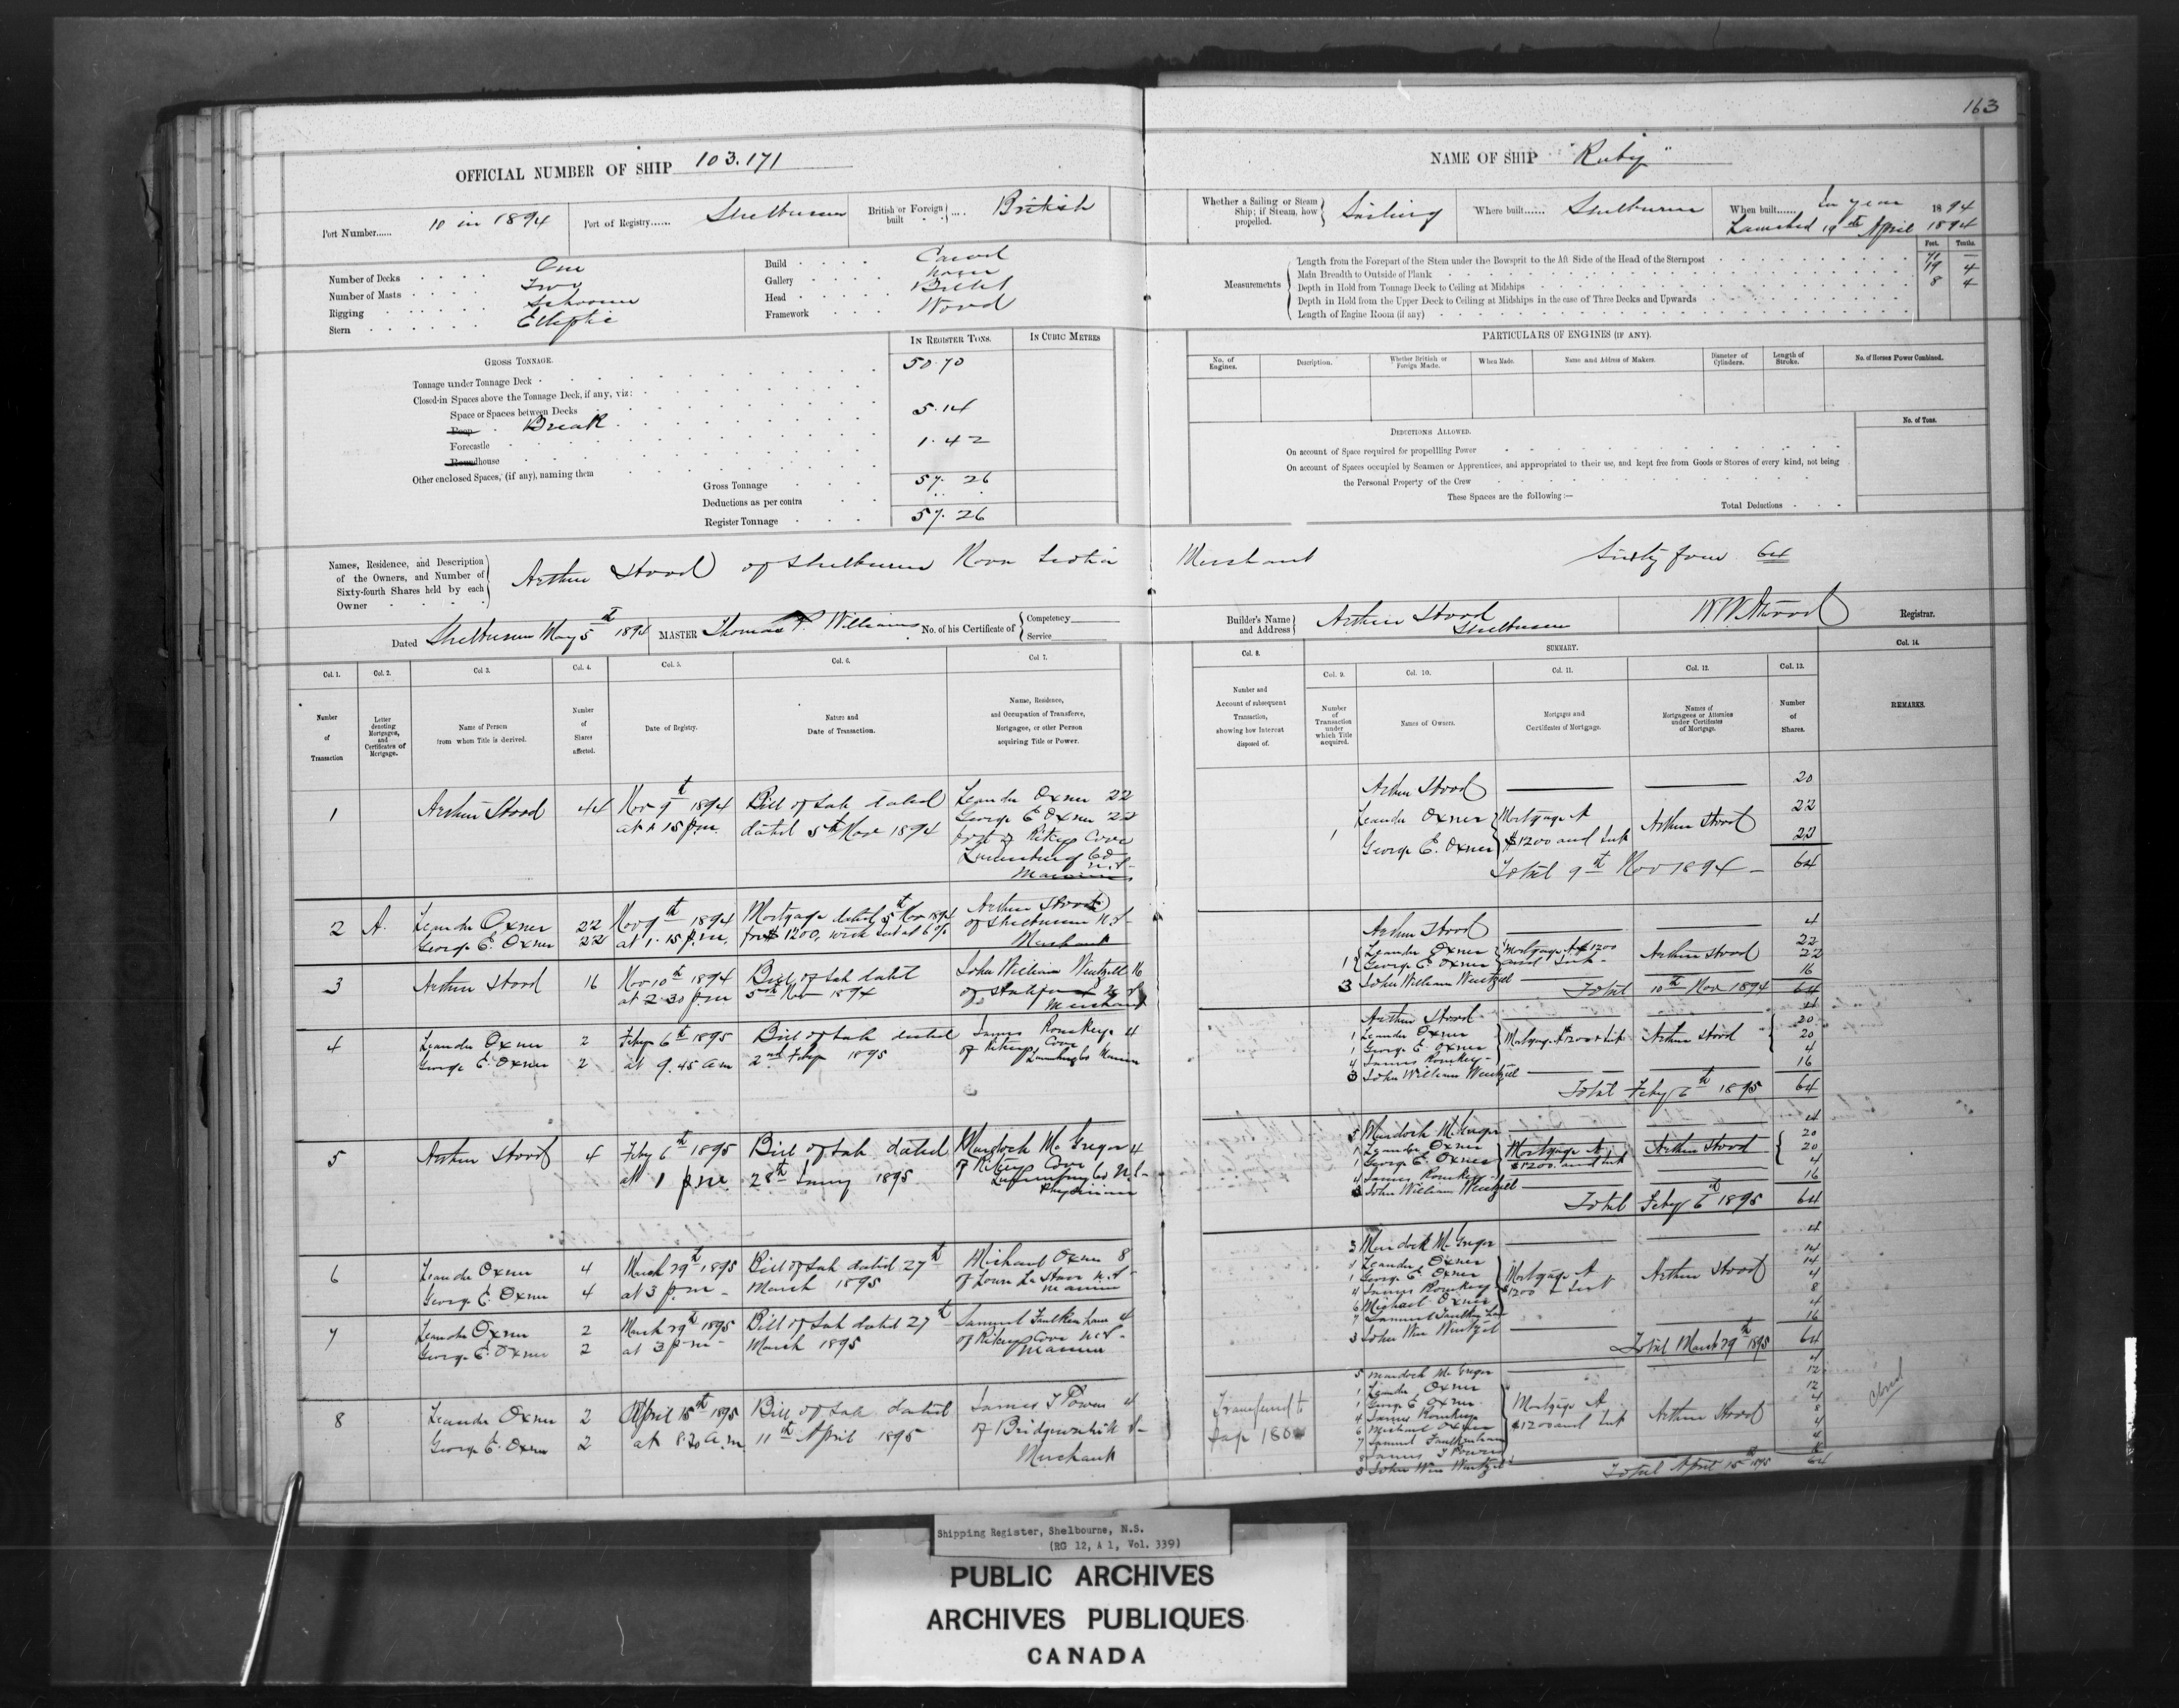 163
OFFICIAL NUMBER OF SHIP 103.171
NAME OF SHIP "Ruby"
Port Number...... 10 in 1894
Port of Registry...... Shelburne
British or Foreign built ... British
Whether a Sailing or Steam Ship; if Steam, how propelled. Sailing
Where built...... Shelburne
When built...... In year 1894
Launched 19th April 1894
Number of Decks One
Number of Masts Two
Rigging Schooner
Stern Elliptic
Build Carvel
Gallery None
Head Billet
Framework Wood
Measurements
Feet. Tenths.
Length from the Forepart of the Stem under the Bowsprit to the Aft Side of the Head of the Sternpost 71 —
Main Breadth to Outside of Plank 19 4
Depth in Hold from Tonnage Deck to Ceiling at Midships 8 4
Depth in Hold from the Upper Deck to Ceiling at Midships in the case of Three Decks and Upwards
Length of Engine Room (if any)
GROSS TONNAGE.
IN REGISTER TONS.
IN CUBIC METRES
Tonnage under Tonnage Deck 50.70
Closed-in Spaces above the Tonnage Deck, if any, viz:
Space or Spaces between Decks
Poop Break 5.14
Forecastle 1.42
Roundhouse
Other enclosed Spaces, (if any), naming them
Gross Tonnage 57.26
Deductions as per contra
Register Tonnage 57.26
PARTICULARS OF ENGINES (IF ANY).
No. of Engines.
Description.
Whether British or Foreign Made.
When Made.
Name and Address of Makers.
Diameter of Cylinders.
Length of Stroke.
No. of Horses Power Combined.
DEDUCTIONS ALLOWED.
No. of Tons.
On account of Space required for propelling Power
On account of Spaces occupied by Seamen or Apprentices, and appropriated to their use, and kept free from Goods or Stores of every kind, not being
the Personal Property of the Crew
These Spaces are the following :—
Total Deductions
Names, Residence, and Description of the Owners, and Number of Sixty-fourth Shares held by each Owner
Arthur Hood of Shelburne Nova Scotia Merchant Sixty four 64
Dated Shelburne May 5th 1894
MASTER Thomas P. Williams
No. of his Certificate of Competency Service
Builder's Name and Address Arthur Hood Shelburne
W W Atwood Registrar.
Col. 1. Number of Transaction
Col. 2. Letter denoting Mortgages, and Certificates of Mortgage.
Col 3. Name of Person from whom Title is derived.
Col. 4. Number of Shares affected.
Col. 5. Date of Registry.
Col. 6. Nature and Date of Transaction.
Col 7. Name, Residence, and Occupation of Transferee, Mortgagee, or other Person acquiring Title or Power.
Col. 8. Number and Account of subsequent Transaction, showing how Interest disposed of.
SUMMARY.
Col. 9. Number of Transaction under which Title acquired.
Col. 10. Names of Owners.
Col. 11. Mortgages and Certificates of Mortgage.
Col. 12. Names of Mortgagees or Attornies under Certificates of Mortgage.
Col. 13. Number of Shares.
Col. 14. REMARKS.
1 Arthur Hood 44 Nov 9th 1894 Bill of Sale dated Leander Oxner 22
at 1.15 p.m. dated 5th Nov 1894 George E Oxner 22
both of Ritceys Cove
Lunenburg Co
N.S.
Mariners
Arthur Hood 20
1 Leander Oxner Mortgage A 22
George E. Oxner $1200 and Int Arthur Hood 22
Total 9th Nov 1894 — 64
2 A. Leander Oxner 22 Nov 9th 1894 Mortgage dated 5th Nov 1894 Arthur Hood
George E. Oxner 22 at 1.15 p.m. for $1200, with Int at 6% of Shelburne N.S.
Merchant
Arthur Hood 4
1 Leander Oxner Mortgage A $1200 22
George E Oxner and Int Arthur Hood 22
3 John William Wentzell 16
Total 10th Nov 1894 64
3 Arthur Hood 16 Nov 10th 1894 Bill of Sale dated John William Wentzell 16
at 2.30 p.m 5th Nov 1894 N.S.
Merchant
4 Leander Oxner 2 Feby 6th 1895 Bill of Sale dated James Romkey 4
George E. Oxner 2 at 9.45 a m 2nd Feby 1895 of Ritceys Cove
Lunenburg Co Mariner
Arthur Hood 4
1 Leander Oxner 20
1 George E. Oxner Mortgage $1200 & Int Arthur Hood 20
4 James Romkey 4
3 John William Wentzell 16
Total Feby 6th 1895 64
5 Arthur Hood 4 Feby 6th 1895 Bill of Sale dated Murdoch McGregor 4
at 1 p.m. 28th Jany 1895 of Ritceys Cove
Lunenburg Co N.S.
Physician
5 Murdoch McGregor 4
1 Leander Oxner Mortgage A 20
George E. Oxner $1200 and Int Arthur Hood 20
4 James Romkey 4
3 John William Wentzell 16
Total Feby 6th 1895 64
6 Leander Oxner 4 March 29th 1895 Bill of Sale dated 27th Michael Oxner 8
George E. Oxner 4 at 3 p.m March 1895 N.S.
Mariner
3 Murdock McGregor 4
1 Leander Oxner 14
1 George E. Oxner Mortgage A 14
4 James Romkey $1200 & Int Arthur Hood 4
6 Michael Oxner 8
7 Samuel 4
3 John Wm Wentzel 16
Total March 29th 1895 64
7 Leander Oxner 2 March 29th 1895 Bill of Sale dated 27th Samuel Faulkenham 4
George E Oxner 2 at 3 p m March 1895 of Ritceys Cove N.S.
Mariner
8 Leander Oxner 2 April 15th 1895 Bill of Sale dated James T Powers 4
George E. Oxner 2 at 8.30 a.m. 11th April 1895 of Bridgewater N.S.
Merchant
Transferred to
Page 180
5 Murdoch McGregor 4
1 Leander Oxner 12
1 George E Oxner Mortgage A 12
4 James Romkey $1200 and Int Arthur Hood 4
6 Michael Oxner 8
7 Samuel Faulkenham 4
8 James T Powers 4
3 John Wm Wentzel
Total April 15th 1895 64
Closed
Shipping Register, Shelbourne, N.S.
(RG 12, A 1, Vol. 339)
PUBLIC ARCHIVES
ARCHIVES PUBLIQUES
CANADA